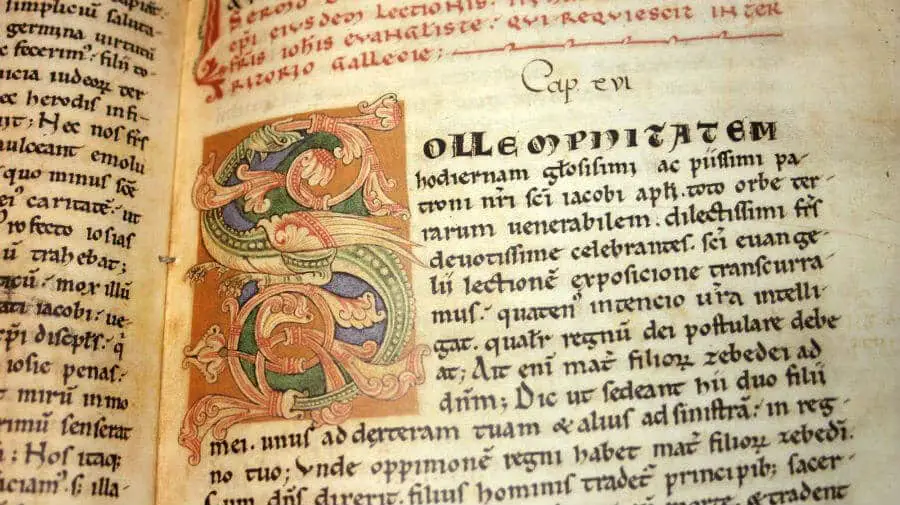 impliciū saluta-
germina virtutū
fecerim᛫ filii to-
nicia iudeoꝝ ter
ec herodis infi-
Hec nos frs
mulceant emolu
quo minus scē
ei caritatē᛫ ut
profecto iosias
ū trahebat;
mox illū
ati iacobi᛫ ue-
epi discipls᛫ q
iosie penas᛫
mirū inmo
rimū senserat
Hos itaq;
iciam᛫ s; illa-
SERMO
epi eiusdem lectionis᛫
fris iohis evangeliste᛫ qui requiescit in ter
ritorio gallecie;
Cap xvi
SOLLEMPNITATEM
hodiernam glosisimi ac piissimi pa-
troni nri sci iacobi apli᛫ toto orbe ter-
rarum uenerabilem᛫ dilectissimi frs
deuotissime celebrantes᛫ sci euange-
lii lectionē exposicione transcurra-
mus᛫ quaten᛫ intencio ura intelli-
gat᛫ qualr regnū dei postulare debe
at; Ait eni mat filioꝝ zebedei ad
dnm; Dic ut sedeant hii duo filii
mei᛫ unus ad dexteram tuam & alius ad sinistrā᛫ in reg-
no tuo; Unde oppinionē regni habet mat filioꝝ zebedi᛫
Cum dns dixerit᛫ filius hominis tradet principib; sacer-
morte᛫ & tradent